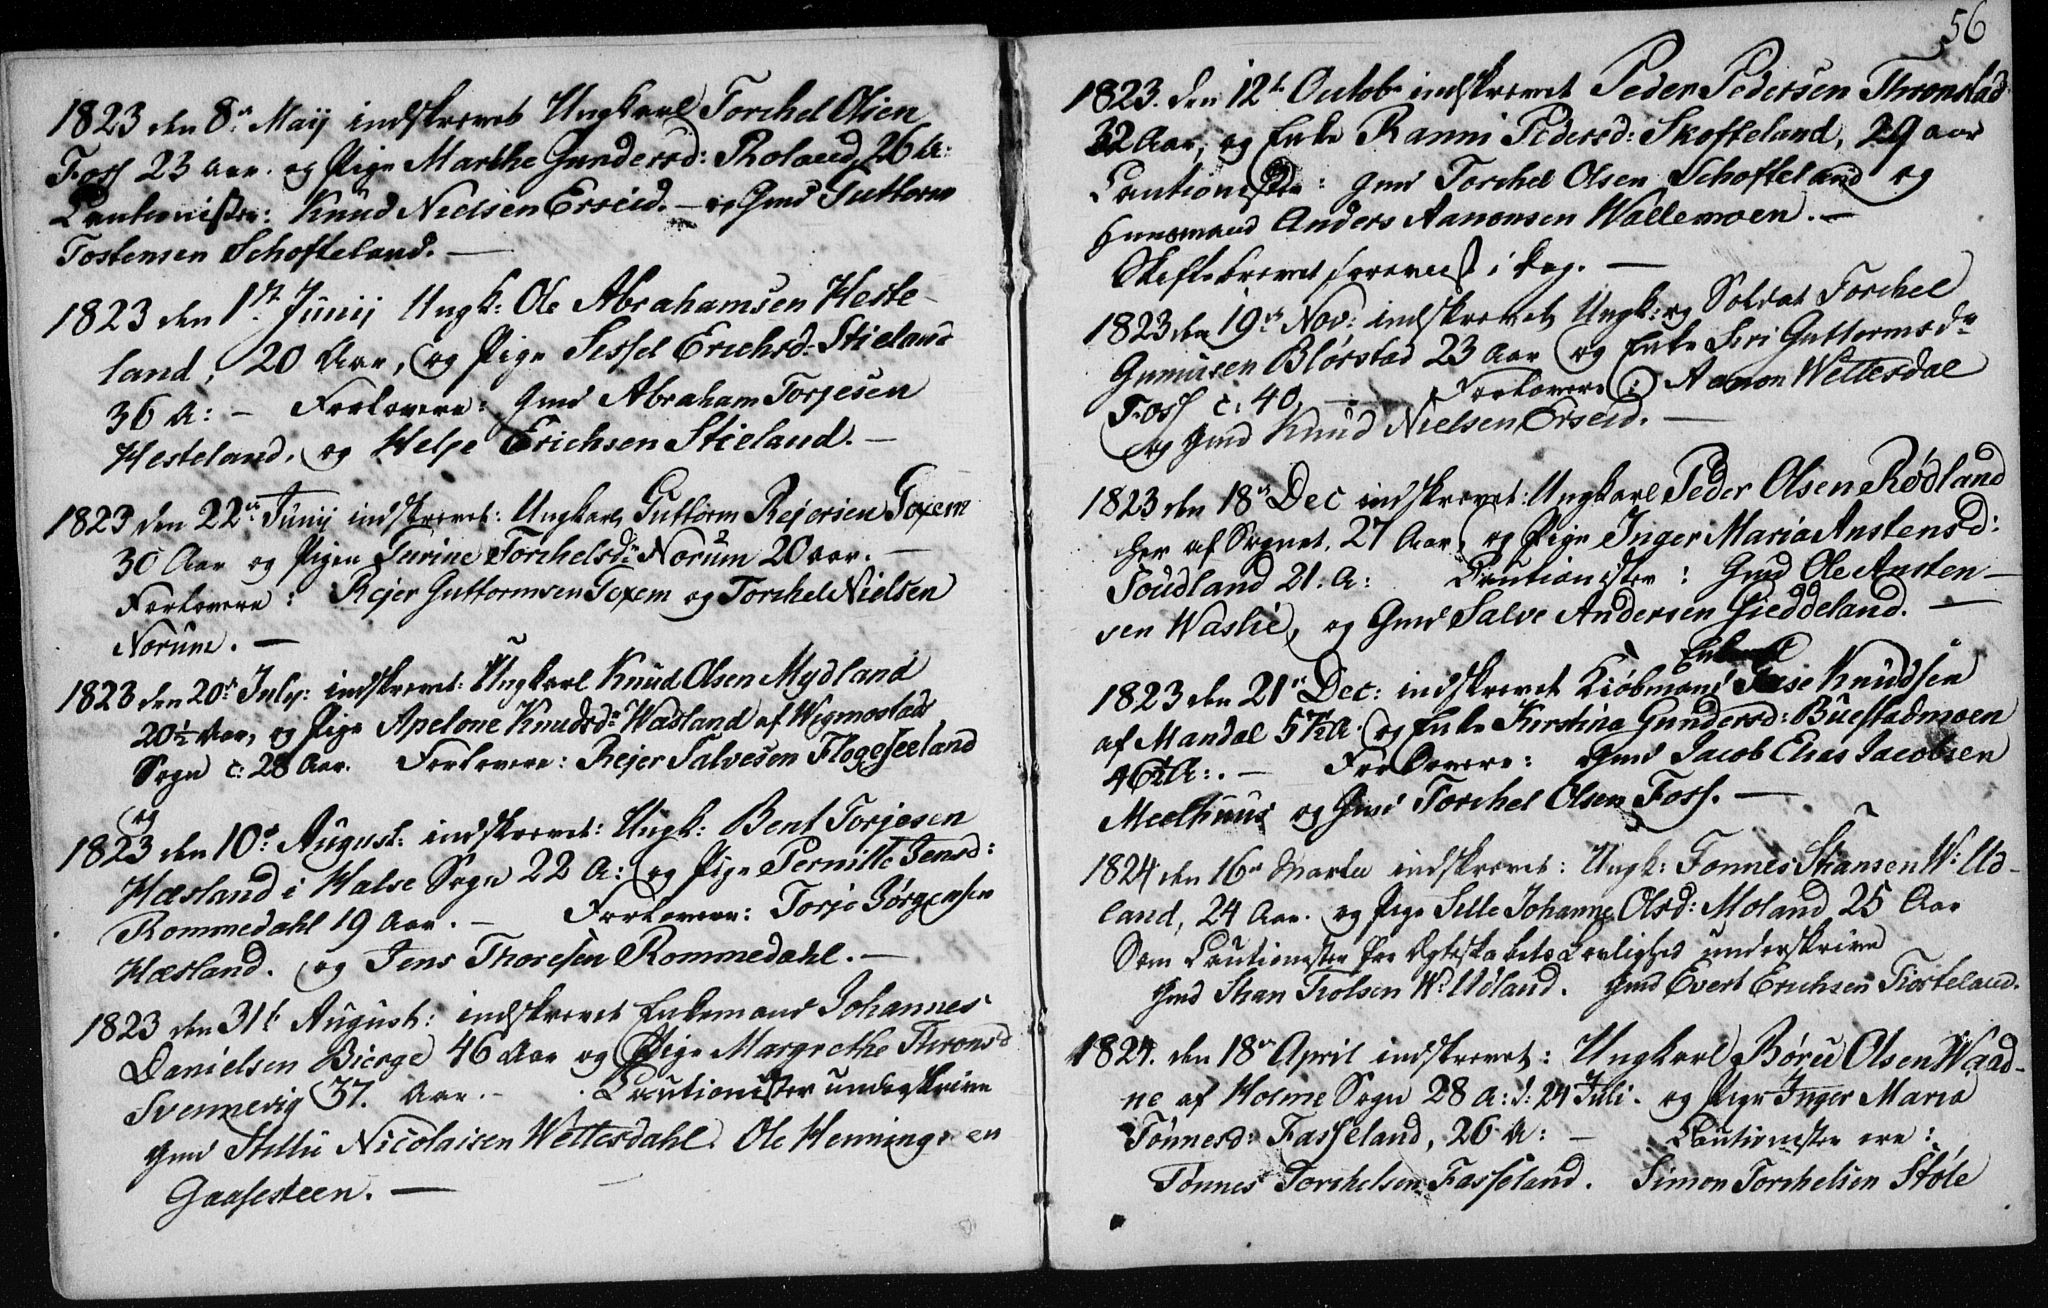 1823 den 8de Maij indskrevet Ungkarl Torchel Olsen
Foss 23 Aar. og Pige Marthe Gundersd: Tholand, 26 A:
Cautionister: Knud Nielsen Erseid. — og Gmd Guttorm
Tostensen Schofteland. —
1823 den 1ste Junij Ungk: Ole Abrahamsen Heste-
land, 20 Aar, og Pige Sissel Erichsd: Stieland
36 A: — Forlovere: Gmd Abraham Torjesen
Hesteland, og Helje Erichsen Stieland. —
1823 den 22de Junij indskrevet: Ungkarl Guttorm Rejersen Toxem
30 Aar og Pigen Turine Torchelsdr Norum 20 aar. —
Forlovere: Rejer Guttormsen Toxem og Torchel Nielsen
Norum. —
1823 den 20de July: indskrevet: Ungkarl Knud Olsen Mydland
20½ Aar, og Pige Apelone Knudsdr Wasland af Wigmostads
Sogn c: 28 Aar. Forlovere: Rejer Salvesen Flogeseeland
og
1823 den 10de August: indskrevet: Ungk: Bent Torjesen
Hæsland i Halse Sogn 22 A: og Pige Pernille Jensd:
Rommedahl 19 Aar. — Forlovere: Torje Jørgensen
Hæsland. og Jens Thoresen Rommedahl. —
1823 den 31te August: indskrevet Enkemand Johannes
Danielsen Bierge 46 Aar og Pige Margrethe Thronsd
Svennevig 37. Aar. — Cautionister underskrive
Gmd Stillu Nicolaisen Wettesdahl. Ole Henningsen
Gaasesteen. —
56
1823. den 12te Octobr indskrevet Peder Pedersen Thronstad
32 Aar, og Enke Ranni Pedersd: Skofteland, 29 aar
Cautionister: Gmd Torchel Olsen Schofteland og
Huusmand Anders Aanonsen Wallemoen. —
Skiftebrevet foreviist i dag. —
1823 den 19de Nov: indskrevet Ungk: og Soldat Torchel
Gunuisen Blørstad 23 Aar og Enke Siri Guttormsdr
Foss c: 40. — Forlovere: Aanon Wettesdal
og Gmd Knud Nielsen Erseid. —
1823 den 18de Dec indskrevet: Ungkarl Peder Olsen Rødland
her af Sognet, 27 Aar, og Pige Inger Maria Anstensd:
Foudland 21. A: Cautionister: Gmd Ole Ansten-
sen Waslie, og Gmd Salve Andersen Gieddeland. —
Enkemd
1823 den 21de Dec: indskrevet Kiøbmand Knudsen
af Mandal 57½ A. og Enke Kirstina Gundersd: Buestadmoen
46½ A:. — Forlovere: Gmd Jacob Elias Jacobsen
Meelhuus og Gmd Torchel Olsen Foss. —
1824 den 16de Martii indskrevet: Ungk: Tønnes Skansen W: Ud-
land, 24 Aar. og Pige Sille Johanne Olsd: Moland 25 Aar
Som Cautionister for Ægteskabets Lovlighed underskrive
Gmd Skan Trolsen W: Udland. Gmd Evert Erichsen Tiorteland.
1824. den 18de April indskrevet: Ungkarl Børu Olsen Waad-
ne af Holme Sogn 28 A: d: 24 Juli. og Pige Inger Maria
Tønnesd: Fasseland, 26 A: — Cautionister ere:
Tønnes Torchelsen Fasseland. Simon Torchelsen Støle